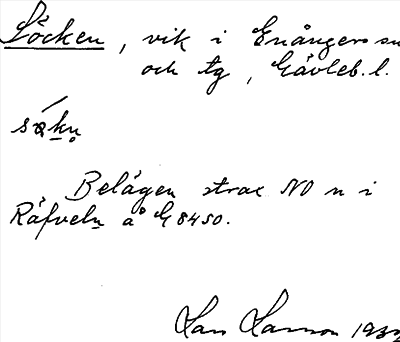 Söcken, vik i Enångers sn
och tg, Gävleb. l.
Belägen strax NO n i
Räfveln å G 8450.
Lars Larsson